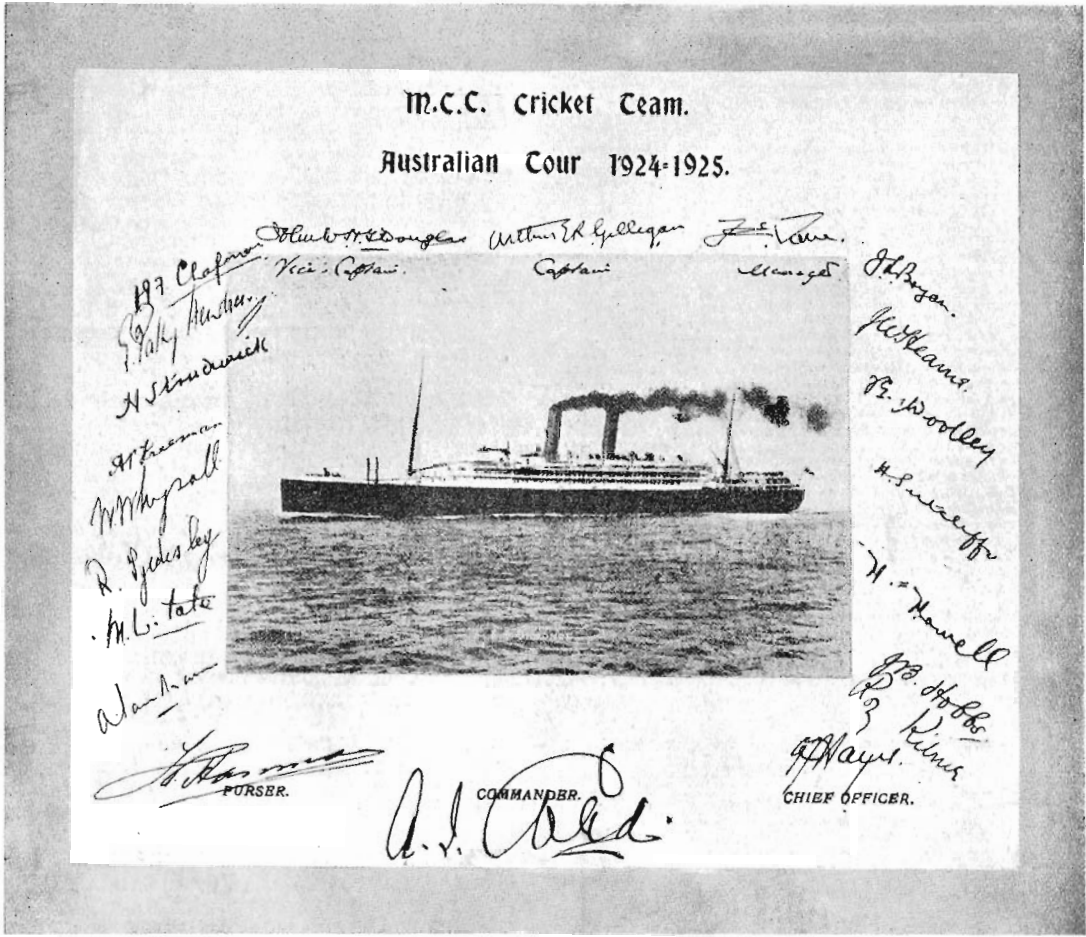 M.C.C. Cricket Team.
Australian Tour 1924=1925.
John W.H.T. Douglas
Vice-Captain.
Arthur E.R. Gilligan
Captain
Manager.
A P F Chapman
H Strudwick
AP Freeman
W W Whysall
R. Tyldesley
M.W. Tate
J.L. Bryan.
J W Hearne.
F.E. Woolley
H. Sutcliffe
H. Howell
J B. Hobbs
R Kilner
PURSER.
COMMANDER.
CHIEF OFFICER.